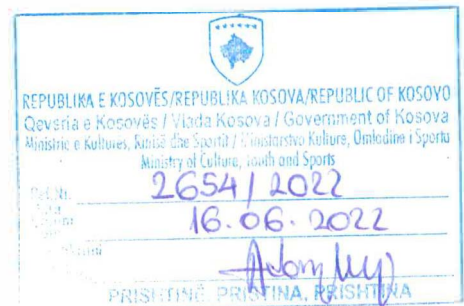 REPUBLIKA E KOSOVËS/REPUBLIKA KOSOVA/REPUBLIC OF KOSOVO
Qeveria e Kosovës / Vlada Kosova / Government of Kosova
Ministria e Kulturës, Rinisë dhe Sportit / Ministarstvo Kulture, Omladine i Sporta
Ministry of Culture, Youth and Sports
2654 / 2022
16.06.2022
PRISHTINË, PRISTINA, PRISHTINA